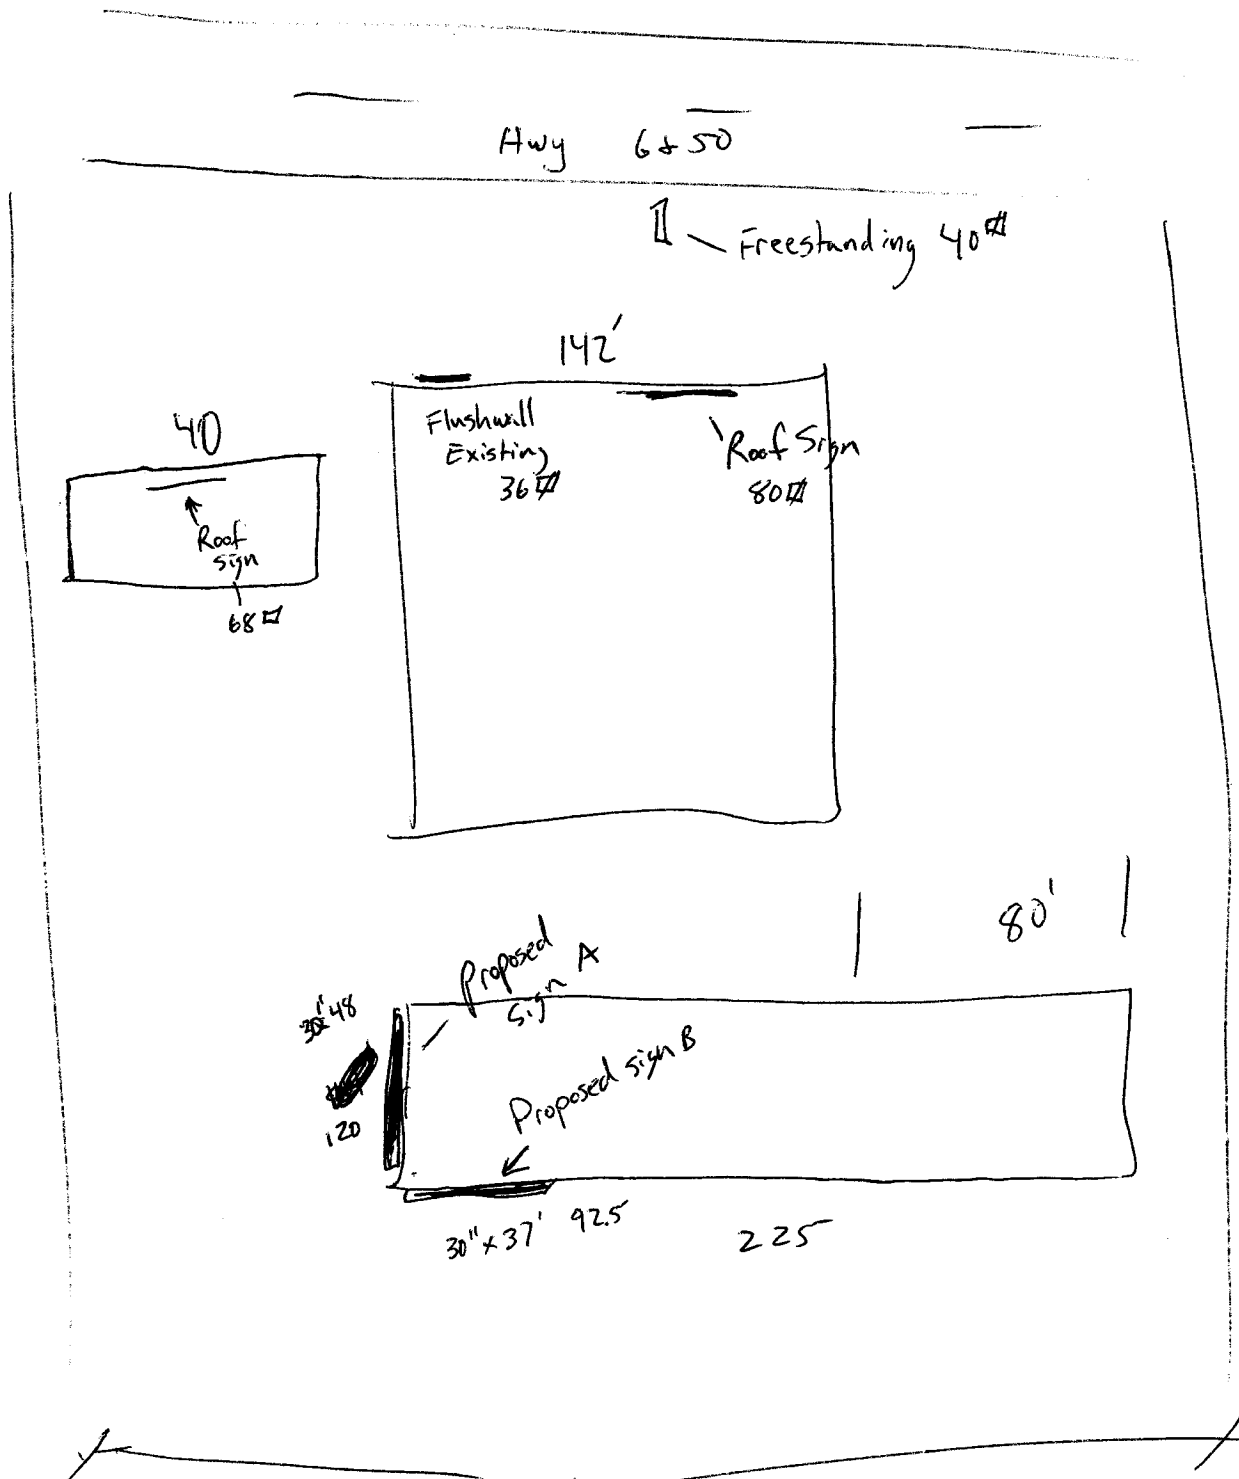 Hwy 6 & 50
Freestanding 40
142'
Flushwall
Existing
36
Roof Sign
80
40
Roof
sign
68
80'
Proposed
sign A
48
120
Proposed sign B
30" x 37' 92.5
225